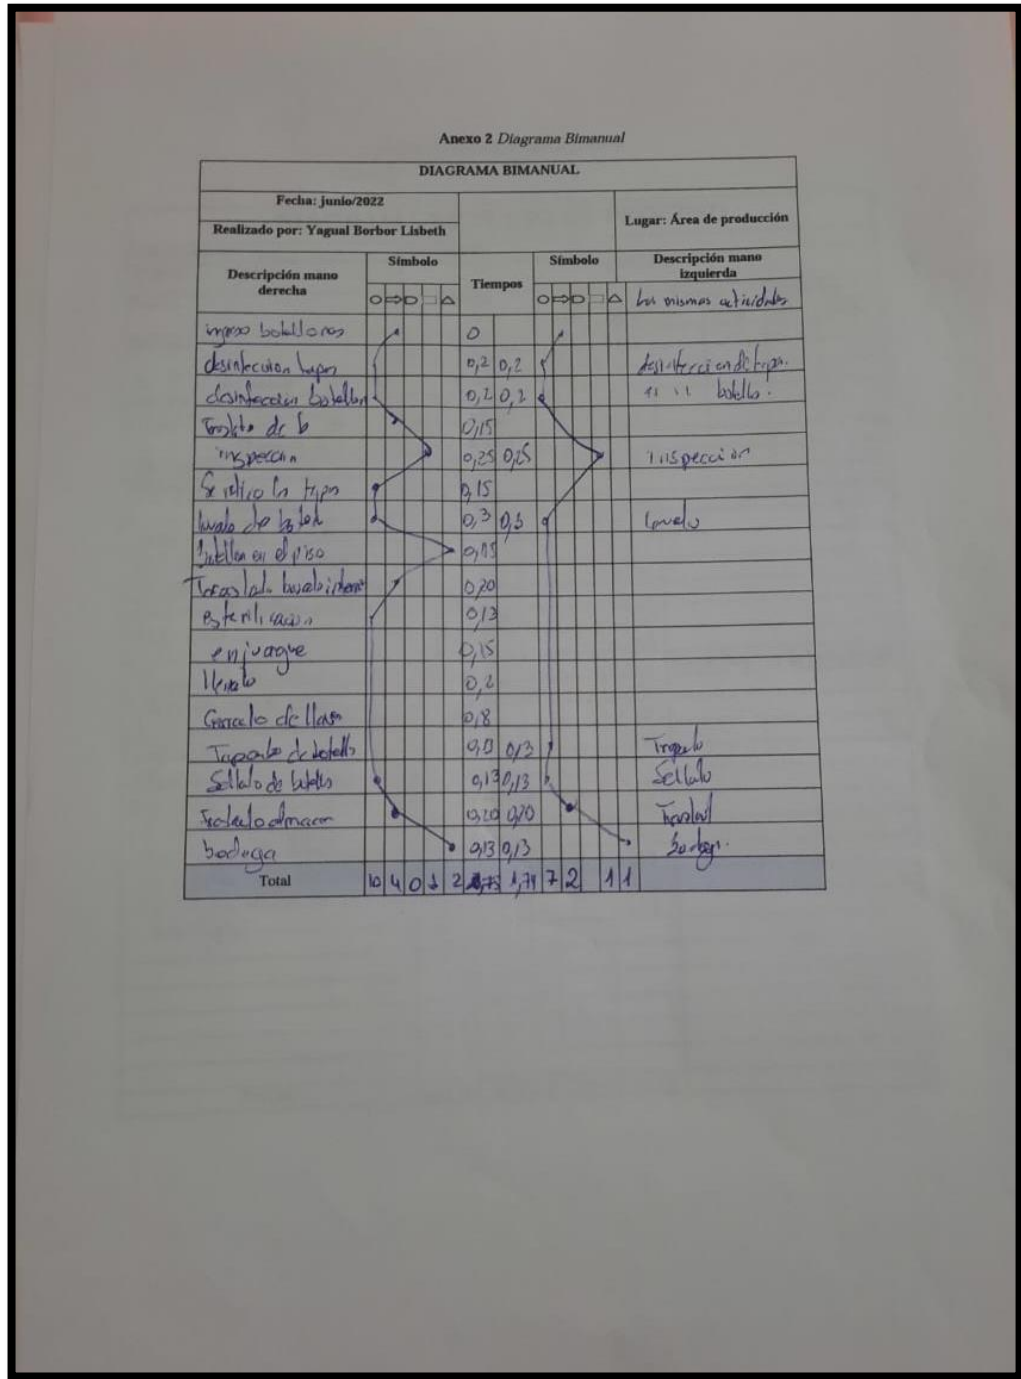 Anexo 2 Diagrama Bimanual
DIAGRAMA BIMANUAL
Fecha: junio/2022
Realizado por: Yagual Borbor Lisbeth
Lugar: Área de producción
Descripción mano derecha Símbolo Tiempos Símbolo Descripción mano izquierda
Las mismas actividades
ingreso botellones 0
desinfeccion tapas 0,2 0,2 desinfeccion de tapas.
desinfeccion botellon 0,2 0,2 " " botella.
de b 0,15
inspeccion 0,25 0,25 inspeccion
Se retiro la tapa 0,15
lavado de 0,3 0,3 lavado
botellon en el piso
Traslado 0,20
esterilizacion 0,13
enjuague 0,15
llenado 0,2
de llave 0,8
Tapado de botella 0,13 0,13
Sellado de botella 0,13 0,13 Sellado
0,20 0,20
bodega 0,13 0,13 bodega.
Total 10 4 0 1 2 1,74 7 2 1 1